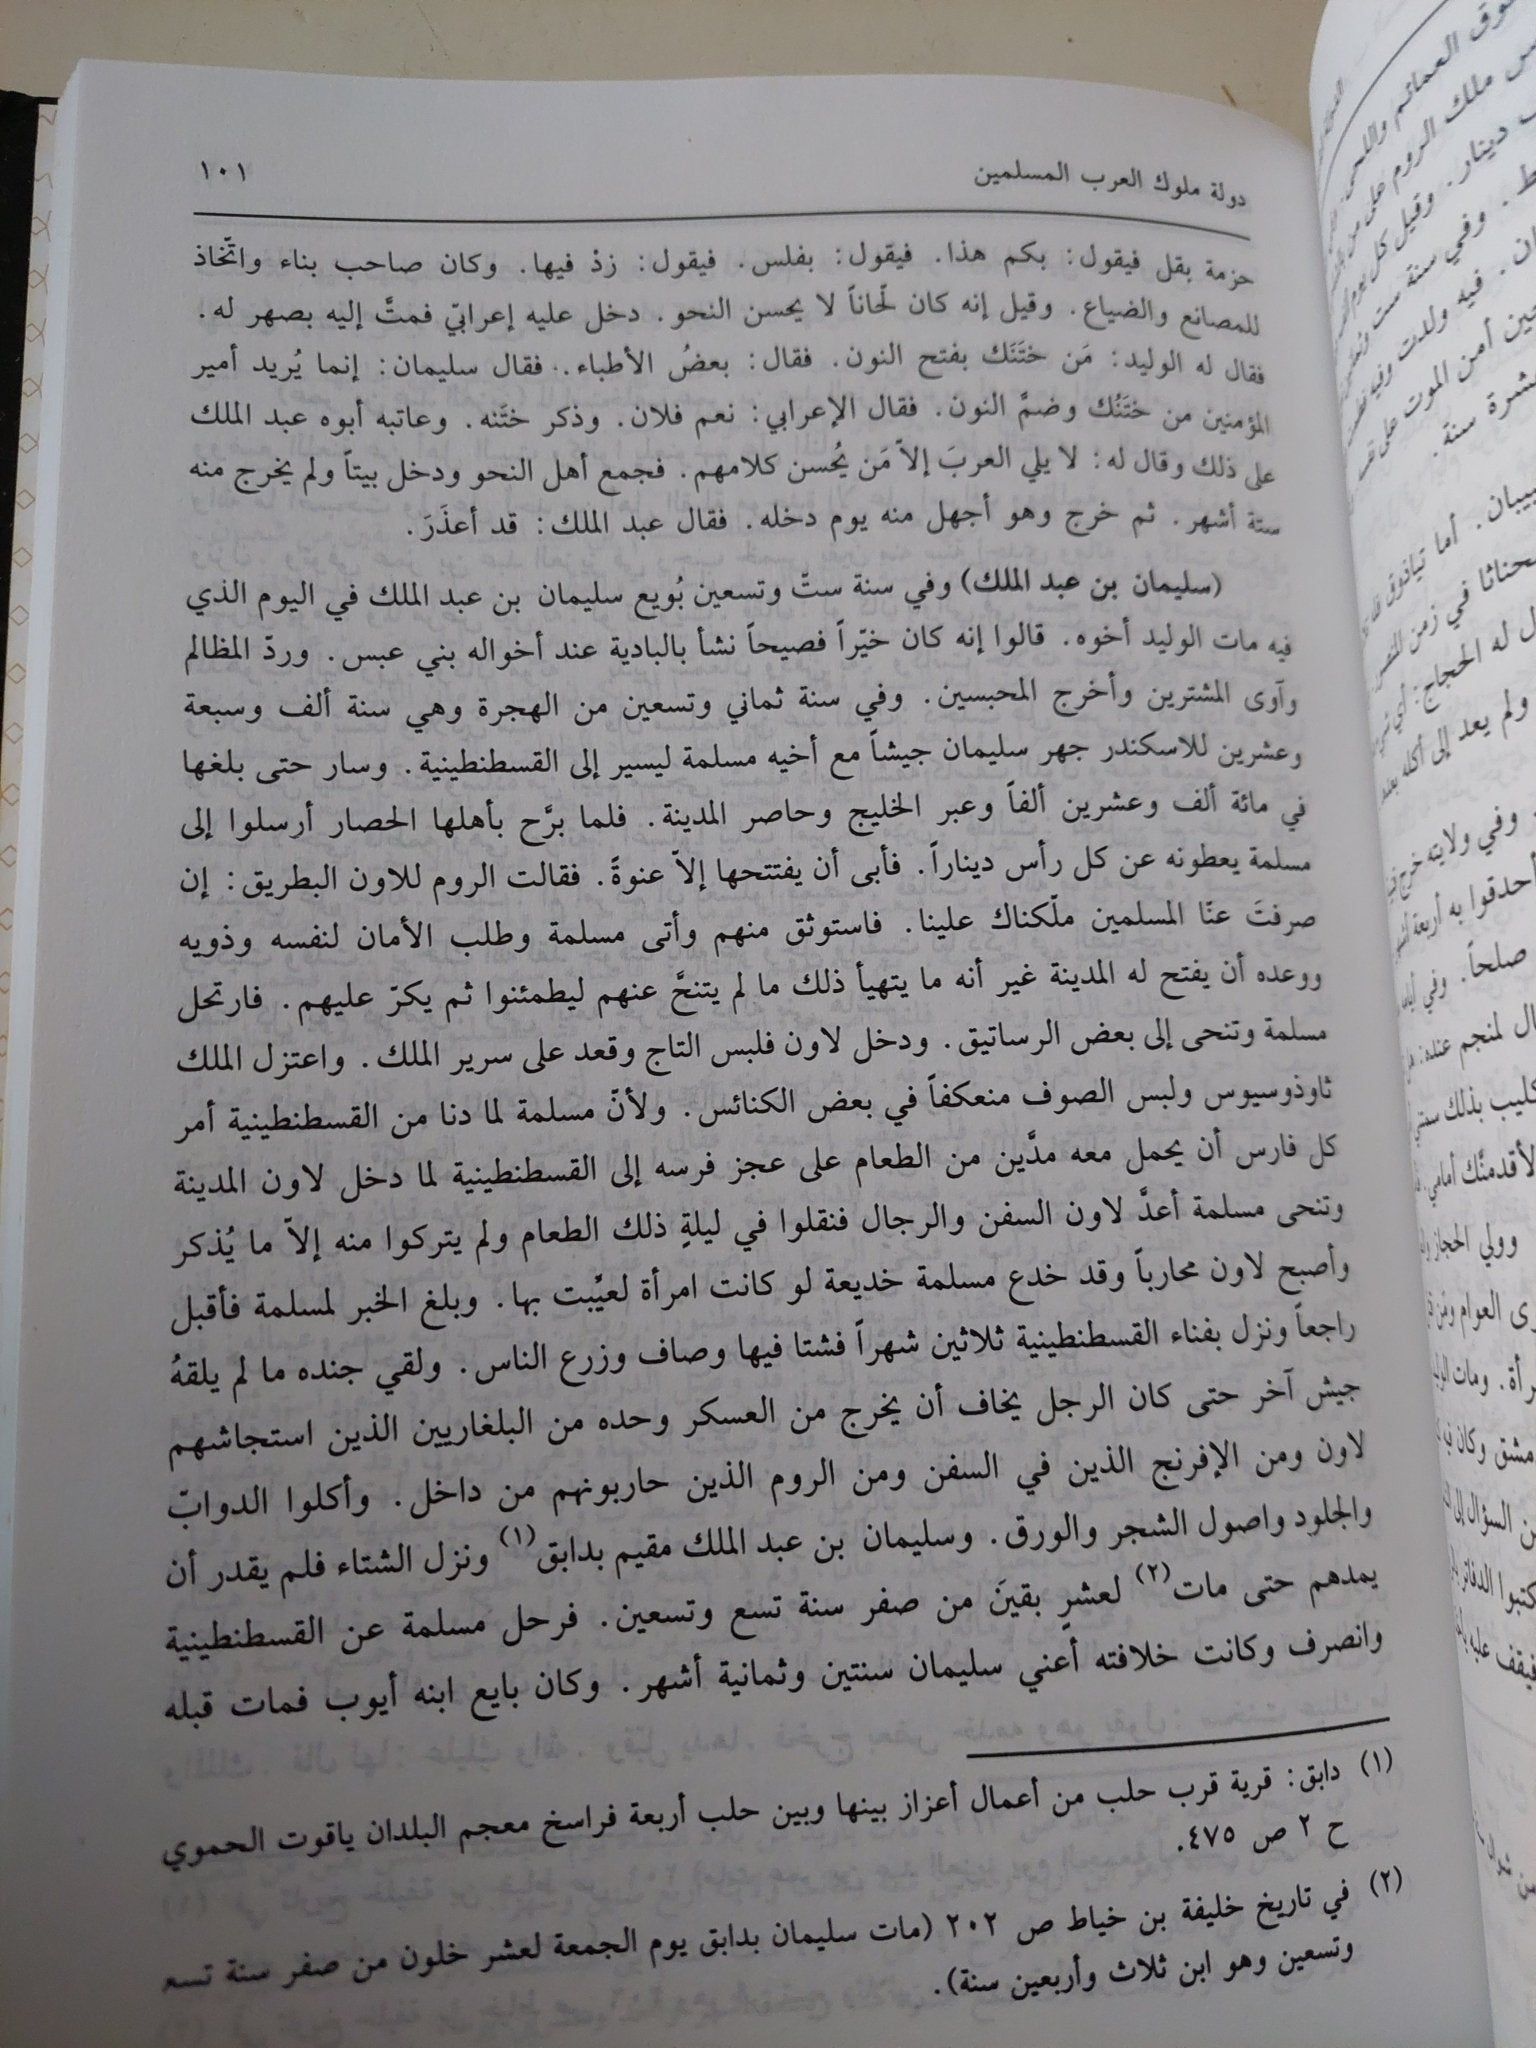 دولة ملوك العرب المسلمين ١٠١
حزمة بقل فيقول: بكم هذا. فيقول: بفلس. فيقول: زدْ فيها. وكان صاحب بناء واتّخاذ
للمصانع والضياع. وقيل إنه كان لحّاناً لا يحسن النحو. دخل عليه إعرابيّ فمتَّ إليه بصهر له.
فقال له الوليد: مَن ختَنَك بفتح النون. فقال: بعضُ الأطباء.. فقال سليمان: إنما يُريد أمير
المؤمنين من ختَنُك وضمَّ النون. فقال الإعرابي: نعم فلان. وذكر ختَنه. وعاتبه أبوه عبد الملك
على ذلك وقال له: لا يلي العربَ إلاّ مَن يُحسن كلامهم. فجمع أهل النحو ودخل بيتاً ولم يخرج منه
ستة أشهر. ثم خرج وهو أجهل منه يوم دخله. فقال عبد الملك: قد أعذَرَ.
(سليمان بن عبد الملك) وفي سنة ستّ وتسعين بُويع سليمان بن عبد الملك في اليوم الذي
فيه مات الوليد أخوه. قالوا إنه كان خيّراً فصيحاً نشأ بالبادية عند أخواله بني عبس. وردّ المظالم
وآوى المشترين وأخرج المحبسين. وفي سنة ثماني وتسعين من الهجرة وهي سنة ألف وسبعة
وعشرين للاسكندر جهر سليمان جيشاً مع أخيه مسلمة ليسير إلى القسطنطينية. وسار حتى بلغها
في مائة ألف وعشرين ألفاً وعبر الخليج وحاصر المدينة. فلما برَّح بأهلها الحصار أرسلوا إلى
مسلمة يعطونه عن كل رأس ديناراً. فأبى أن يفتتحها إلاّ عنوةً. فقالت الروم للاون البطريق: إن
صرفتَ عنّا المسلمين ملّكناك علينا. فاستوثق منهم وأتى مسلمة وطلب الأمان لنفسه وذويه
ووعده أن يفتح له المدينة غير أنه ما يتهيأ ذلك ما لم يتنحَّ عنهم ليطمئنوا ثم يكرّ عليهم. فارتحل
مسلمة وتنحى إلى بعض الرساتيق. ودخل لاون فلبس التاج وقعد على سرير الملك. واعتزل الملك
ثاوذوسيوس ولبس الصوف منعكفاً في بعض الكنائس. ولأنّ مسلمة لما دنا من القسطنطينية أمر
كل فارس أن يحمل معه مدَّين من الطعام على عجز فرسه إلى القسطنطينية لما دخل لاون المدينة
وتنحى مسلمة أعدَّ لاون السفن والرجال فنقلوا في ليلةٍ ذلك الطعام ولم يتركوا منه إلاّ ما يُذكر
وأصبح لاون محارباً وقد خدع مسلمة خديعة لو كانت امرأة لعيِّبت بها. وبلغ الخبر لمسلمة فأقبل
راجعاً ونزل بفناء القسطنطينية ثلاثين شهراً فشتا فيها وصاف وزرع الناس. ولقي جنده ما لم يلقهُ
جيش آخر حتى كان الرجل يخاف أن يخرج من العسكر وحده من البلغاريين الذين استجاشهم
لاون ومن الإفرنج الذين في السفن ومن الروم الذين حاربونهم من داخل. وأكلوا الدوابّ
والجلود واصول الشجر والورق. وسليمان بن عبد الملك مقيم بدابق(١) ونزل الشتاء فلم يقدر أن
يمدهم حتى مات(٢) لعشرٍ بقينَ من صفر سنة تسع وتسعين. فرحل مسلمة عن القسطنطينية
وانصرف وكانت خلافته أعني سليمان سنتين وثمانية أشهر. وكان بايع ابنه أيوب فمات قبله
(١) دابق: قرية قرب حلب من أعمال أعزاز بينها وبين حلب أربعة فراسخ معجم البلدان ياقوت الحموي
ح ٢ ص ٤٧٥.
(٢) في تاريخ خليفة بن خياط ص ٢٠٢ (مات سليمان بدابق يوم الجمعة لعشر خلون من صفر سنة تسع
وتسعين وهو ابن ثلاث وأربعين سنة).